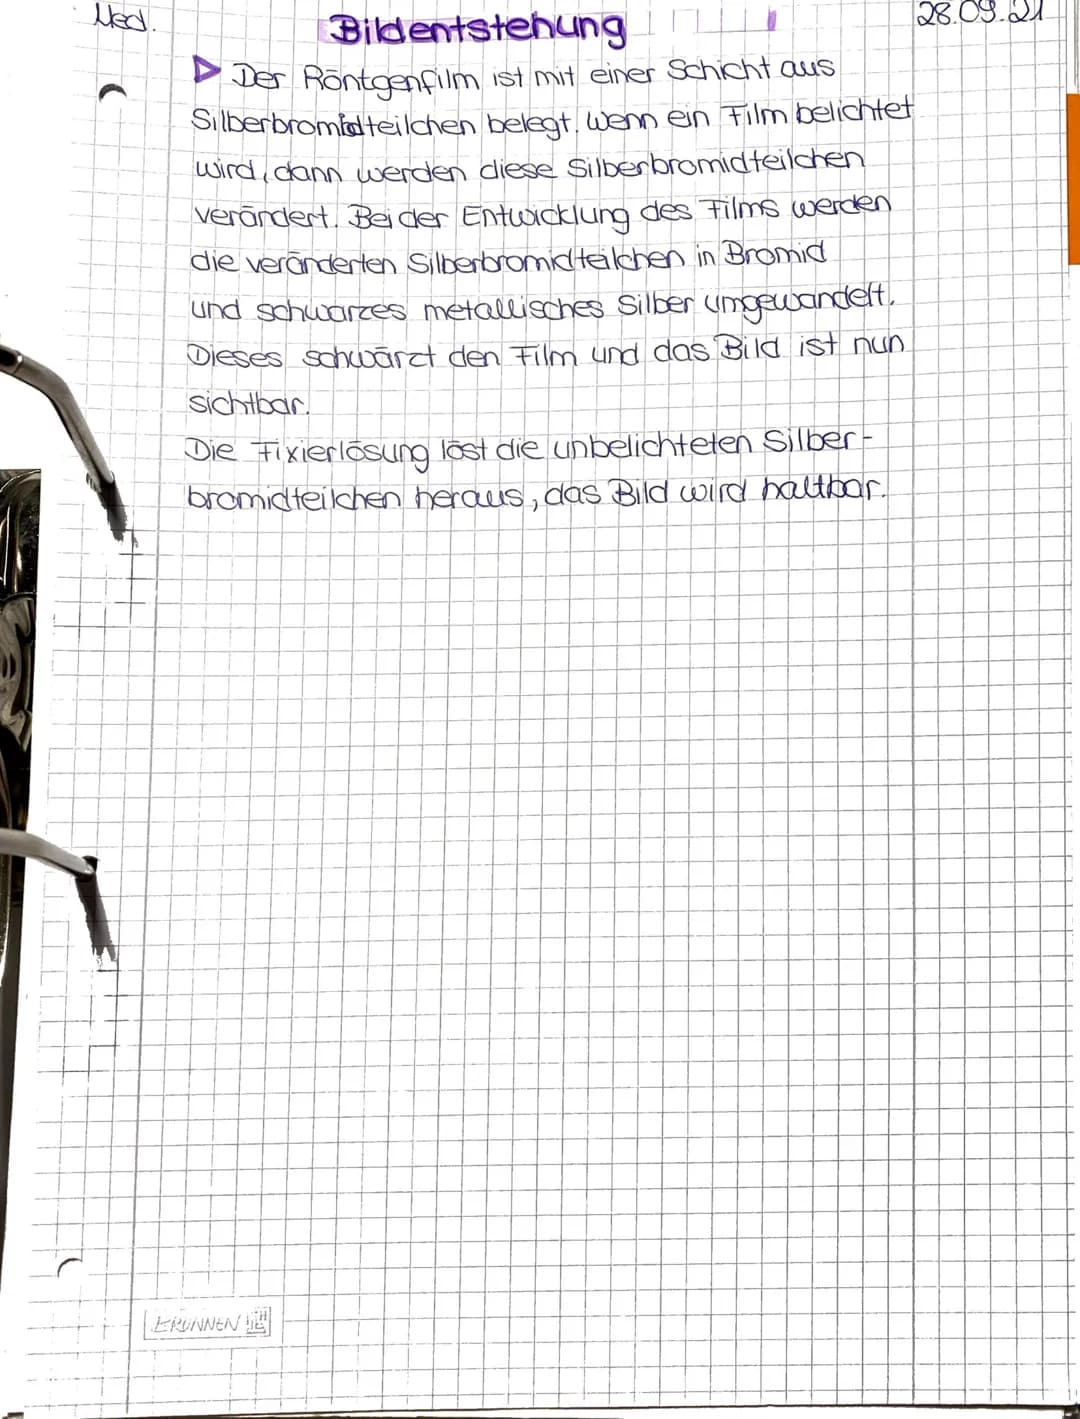 Med.
Bildentstehung
28.09.21
▷ Der Röntgenfilm ist mit einer Schicht aus
Silberbromidteilchen belegt. Wenn ein Film belichtet
wird, dann werden diese Silberbromidteilchen
verändert. Bei der Entwicklung des Films werden
die veränderten Silberbromidteilchen in Bromid
und schwarzes metallisches Silber umgewandelt.
Dieses schwärzt den Film und das Bild ist nun
sichtbar.
Die Fixierlösung löst die unbelichteten Silber-
bromidteilchen heraus, das Bild wird haltbar.
BRUNNEN